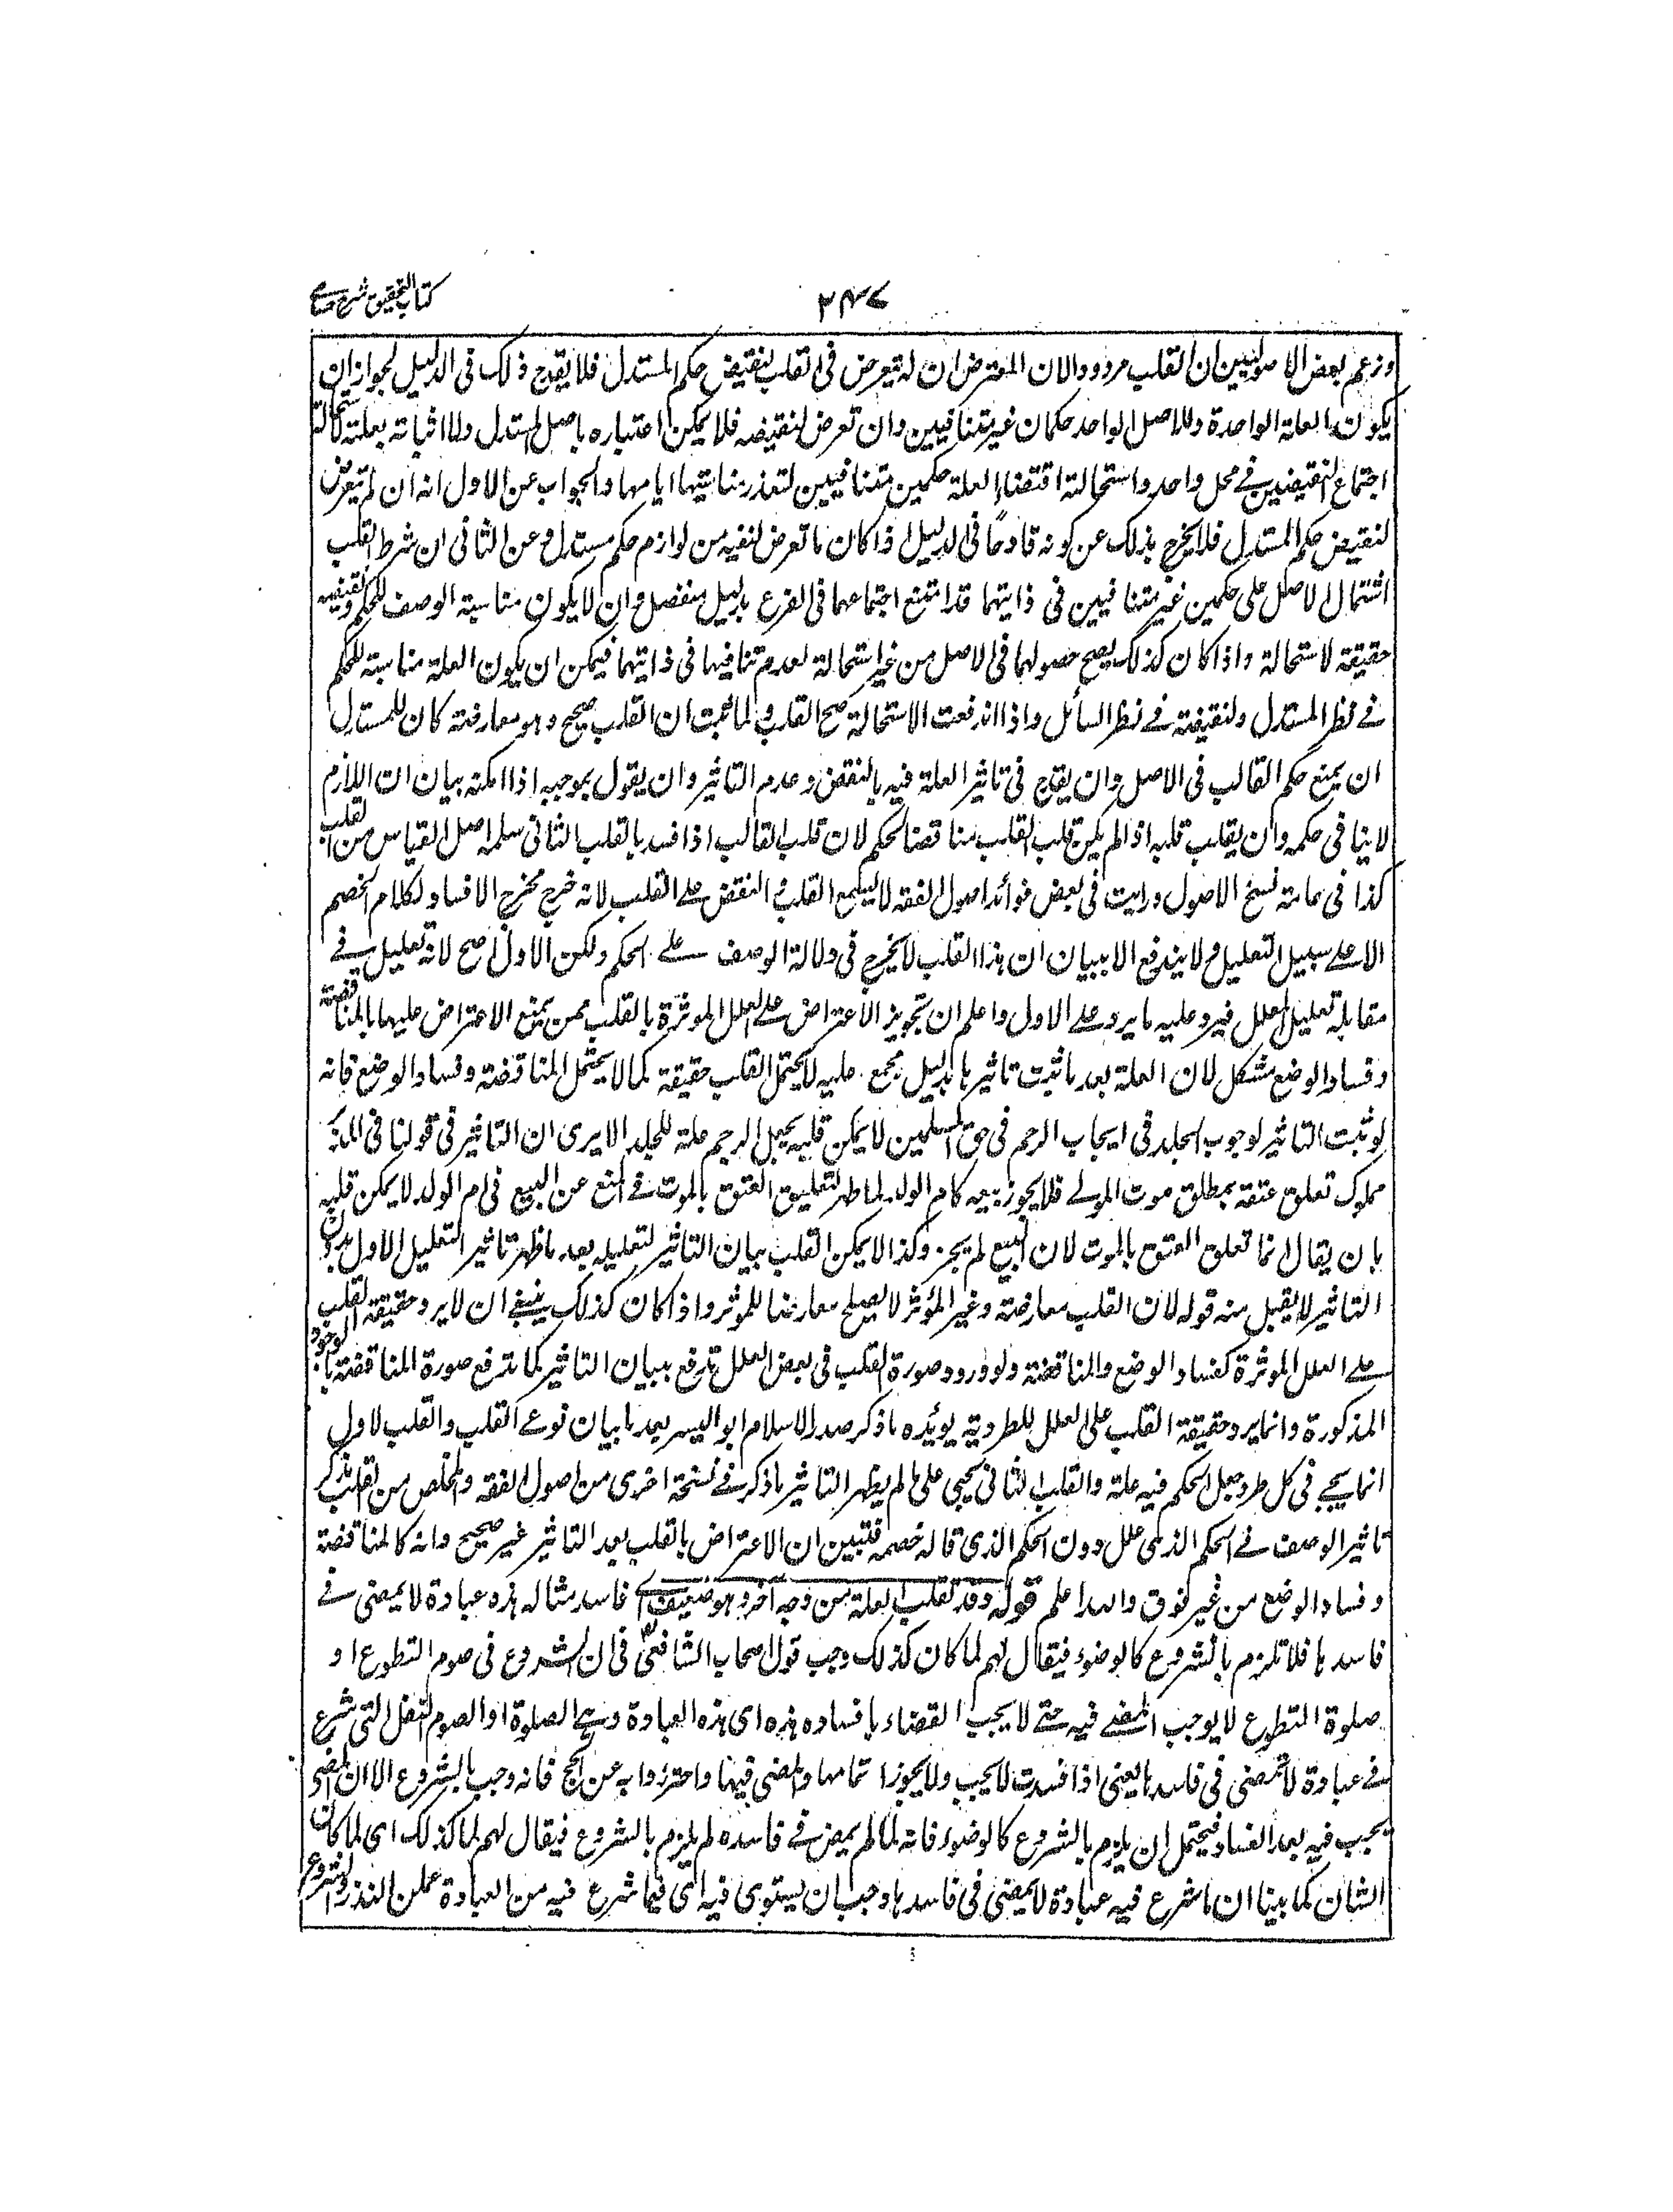 كتاب التحقيق شرح حسامي
٢٤٧
وزعم بعض الاصوليين ان القلب مردود لان المعترض ان لم يتعرض فى القلب لنقيض حكم المستدل فلا يقدح ذلك فى الدليل لجواز ان
يكون للعلة الواحدة وللاصل الواحد حكمان غير متنافيين وان تعرض لنقيضه فلا يمكن اعتباره باصل المستدل ولا اثباته بعلته لاستحالة
اجتماع النقيضين فے محل واحد واستحالة اقتضاء العلة حكمين متنافيين لتعذر مناسبتها اياهما والجواب عن الاول انه ان لم يتعرض
لنقيض حكم المستدل فلا يخرج بذلك عن كونه قادحًا فى الدليل اذا كان ما تعرض لنفيه من لوازم حكم مستدل وعن الثانى ان شرط القلب
اشتمال الاصل على حكمين غير متنافيين فى ذاتيهما قد امتنع اجتماعهما فى الفرع بدليل منفصل وان لا يكون مناسبة الوصف للحكم ونقيضه
حقيقة لاستحالة واذا كان كذلك يصح حصولهما فى الاصل من غير استحالة لعدم تنافيهما فى ذاتيهما فيمكن ان يكون العلة مناسبة للحكم
فے نظر المستدل ولنقيضه فے نظر السائل واذا اندفعت الاستحالة صح القلب ولما ثبت ان القلب صحيح وهو معارضة كان للمستدل
ان يمنع حكم القالب فى الاصل وان يقدح فى تاثير العلة فيه بالنقض وعدم التاثير وان يقول بموجبه اذا امكنه بيان ان اللازم
لا ينافى حكمه وان يقلب قلبه اذا لم يكن قلب القلب مناقضا لحكم لان قلب القالب اذا فسد بالقلب الثانى سلم اصل القياس من القلب
كذا فى عامة نسخ الاصول ورايت فى بعض فوائد اصول الفقه لا يسمع القلب والنقض على القلب لانه خرج مخرج الافساد لكلام الخصم
لا على سبيل التعليل ولا يندفع الا ببيان ان هذا القلب لا يخرج فى دلالة الوصف علے الحكم ولكن الاول اصح لانه تعليل فے
مقابلة تعليل المعلل فيرد عليه ما يرد على الاول واعلم ان تجويز الاعتراض على العلل الموثرة بالقلب ممن يمنع الاعتراض عليها بالمناقضة
وفساد الوضع مشكل لان العلة بعد ما ثبت تاثيرها بدليل مجمع عليه لا يحتمل القلب حقيقة كما لا يحتمل المناقضة وفساد الوضع فانه
لو ثبت التاثير لوجوب الجلد فى ايجاب الرجم فى حق المسلمين لا يمكن قلبه بجعل الرجم علة للجلد الا يرى ان التاثير فى قولنا فى المدبر
مملوك تعلق عتقه بمطلق موت المولے فلا يجوز بيعه كام الولد لما ظهر لتعليق العتق بالموت فے المنع عن البيع فى ام الولد لا يمكن قلبه
بان يقال انما تعلق العتق بالموت لان البيع لم يجز وكذا لا يمكن القلب ببيان التاثير لتعليله بعد ما ظهر تاثير التعليل الاول بدون
التاثير لا يقبل منه قوله لان القلب معارضة وغير المؤثر لا يصلح معارضا للموثر واذا كان كذلك ينبغے ان لا يرد حقيقة القلب
علے العلل الموثرة كفساد الوضع والمناقضة ولو ورد صورة القلب فى بعض العلل تدفع ببيان التاثير كما تدفع صورة المناقضة بالوجوه
المذكورة وانما يرد حقيقة القلب على العلل الطردية يؤيده ما ذكر صدر الاسلام ابو اليسر بعد ما بيان نوعے القلب والقلب لاول
انما يجے فى كل طرد جعل الحكم فيه علة والقلب الثانى يجيى على ما لم يظهر التاثير ما ذكر فے نسخة اخرى من اصول الفقه والمخلص من القلب بذكر
تاثير الوصف فے الحكم الذى علل دون الحكم الذى قاله خصمه فتبين ان الاعتراض بالقلب بعد التاثير غير صحيح وانه كالمناقضة
وفساد الوضع من غير فرق والله اعلم قوله وقد تقلب العلة من وجه آخر وهو ضعيف اى فاسد مثاله هذه عبادة لا يمضى فے
فاسدها فلا تلزم بالشروع كالوضوء فيقال لهم لما كان كذلك وجب قول اصحاب الشافعى فى ان الشروع فى صوم التطوع او
صلوة التطوع لا يوجب المضے فيه حتے لا يجب القضاء بافساده هذه اى هذه العبادة وهے الصلوة او الصوم النفل التى شرع
فے عبادة لا تمضى فى فاسدها يعنى اذا فسدت لا يجب ولا يجوز اتمامها والمضى فيها واحترزوا به عن الحج فانه وجب بالشروع لان المضى
يجب فيه بعد الفساد فيحتمل ان يلزم بالشروع كالوضوء فانه لما لم يمض فے فاسده لم يلزم بالشروع فيقال لهم لما كذلك اى لما كان
الشان كما بينا ان ما شرع فيه عبادة لا يمضى فى فاسدها وجب ان يستوى فيه اى فيما شرع فيه من العبادة عمل النذر والشروع